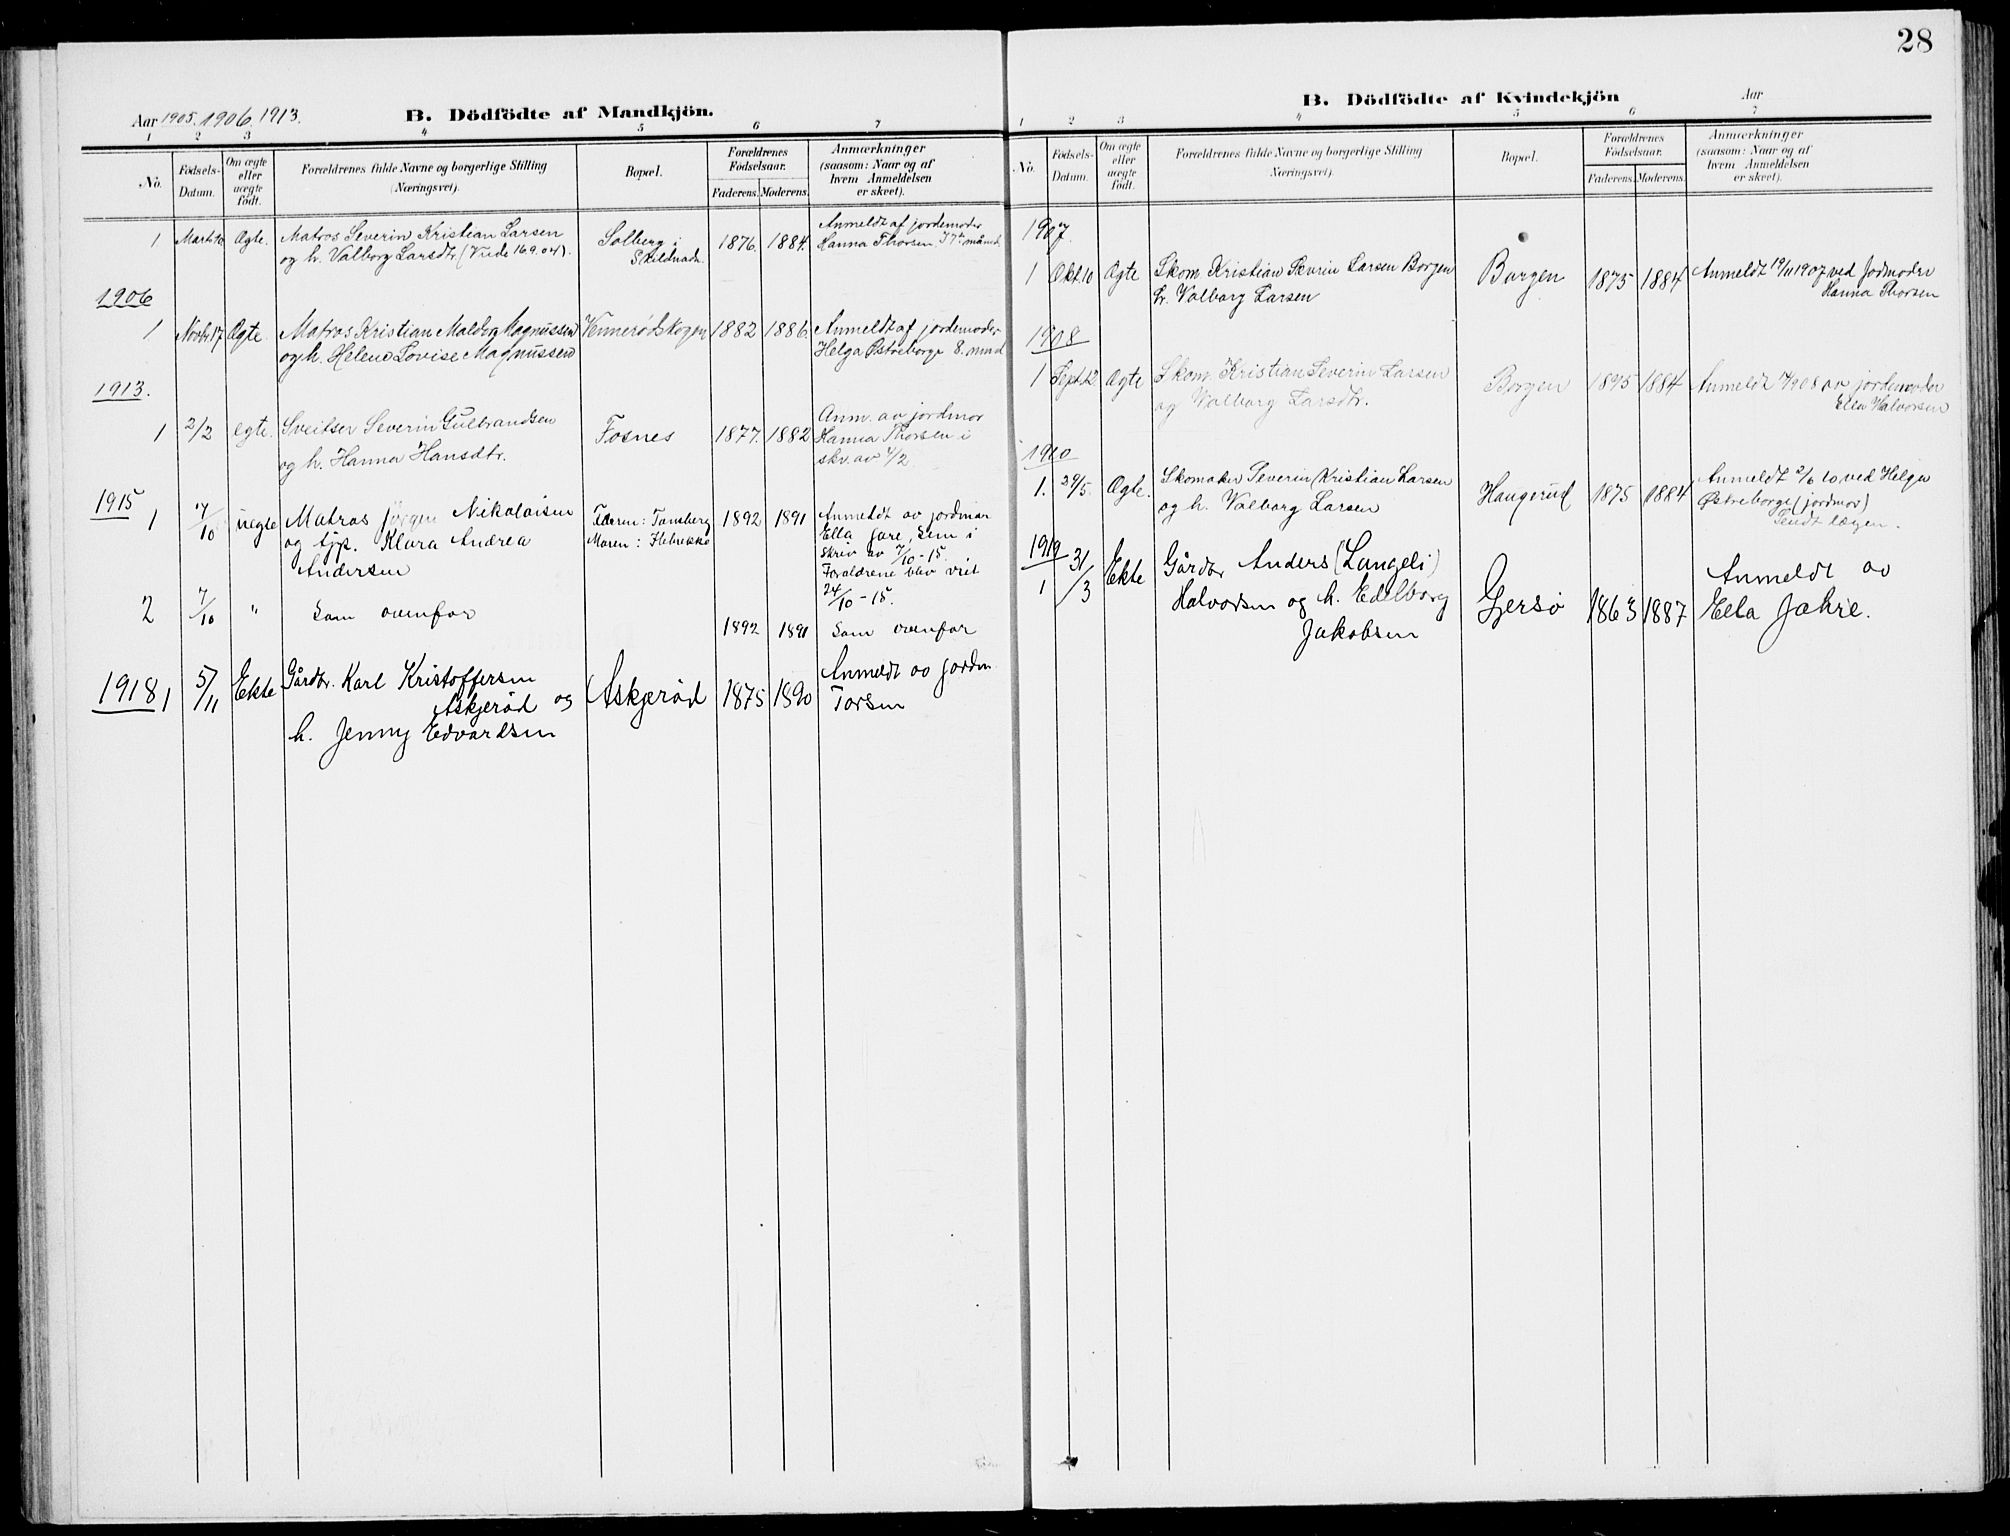 28
Aar 1905. 1906 1913.
B. Dödfödte af Mandkjön.
1 2 3 4 5 6 7
No.
Födsels-Datum.
Om ægte eller uægte födt.
Forældrenes fulde Navne og borgerlige Stilling (Næringsvei).
Bopæl.
Forældrenes Födselsaar.
Faderens. Moderens.
Anmærkninger (saasom: Naar og af hvem Anmeldelsen er skeet).
1 Marts 10 Ægte. Matros Severin Kristian Larsen Solberg i 1876. 1884. Anmeldt af jordemoder
og h. Valborg Larsdtr. (Viede 16.9.04). Hanna Thorsen. I 7de måned
1906
1 Novbr. 17 Ægte. Matros Kristian Magnussen Vennerødskogen 1882 1886. Anmeldt af jordemoder
og h. Helene Lovise Magnussen Helga Østreborge 8. mnd
1913.
1 2/2 egte. Sveitser Severin Gulbrandsen Fosnes 1877. 1882 Anm. av jordmor
og h. Hanna Hansdtr. Hanna Thorsen i
skr. av 4/2
1915
1 7/10 uegte Matros Jörgen Nikolaisen Faren: Tønsberg 1892 1891 Anmeldt av jordmor
og tjp. Klara Andrea Moren: Hebrekke Ella Jare, Sem i
Andersen skriv av 7/10-15.
Forældrene blev viet
24/10-15.
2 7/10 " Som ovenfor 1892 1891 Som ovenfor
1918 1 5/11 Ekte Gårdbr. Karl Kristoffersen Askjerød 1875 1890 Anmeldt av jordm.
Askjerød og Torsen
h. Jenny Edvardsen
B. Dödfödte af Kvindekjön
Aar
1 2 3 4 5 6 7
No.
Födsels-Datum.
Om ægte eller uægte födt.
Forældrenes fulde Navne og borgerlige Stilling (Næringsvei).
Bopæl.
Forældrenes Födselsaar.
Faderens. Moderens.
Anmærkninger (saasom: Naar og af hvem Anmeldelsen er skeet).
1907.
1 Okt. 10 Ægte Skom. Kristian Severin Larsen Borgen Borgen 1875 1884 Anmeldt 19/11 1907 ved Jodmoder
h. Valborg Larsen Hanna Thorsen
1908
1 Sept. 12. Ægte Skom. Kristian Severin Larsen Borgen 1875 1884 Anmeldt 908 av jordemoder
og Valborg Larsdtr. Ella Halvorsen
1910
1. 29/5. Ægte. Skomaker Severin Kristian Larsen Haugerud 1875 1884 Anmeldt 2/6 10 ved Helga
og h. Valborg Larsen Østreborge (jordmor)
Sendt lægen.
1919
1 31/3 Ekte Gårdbr Anders (Langeli) Gjersø 1863 1887 Anmeldt av
Halvorsen og h. Edelborg Ella Jahre.
Jakobsen